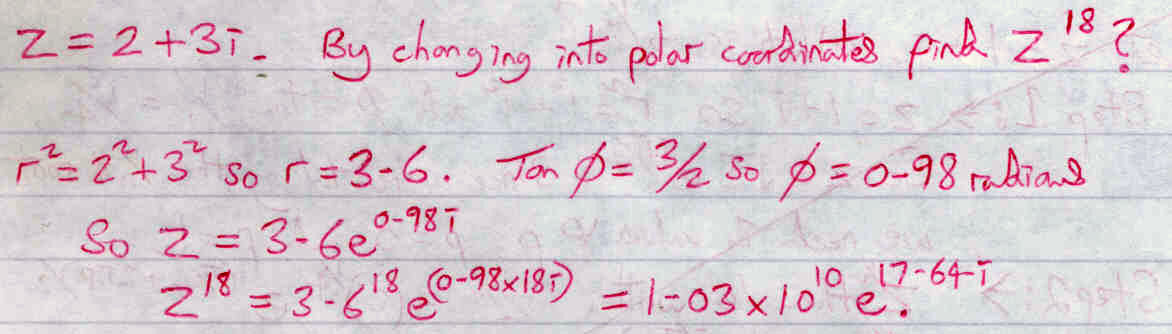 z = 2 + 3i. By changing into polar coordinates find z¹⁸?
r² = 2² + 3² so r = 3·6. Tan φ = 3/2 so φ = 0·98 radians
So z = 3·6e^(0·98i)
z¹⁸ = 3·6¹⁸ e^(0·98×18i) = 1·03 × 10¹⁰ e^(17·64i).